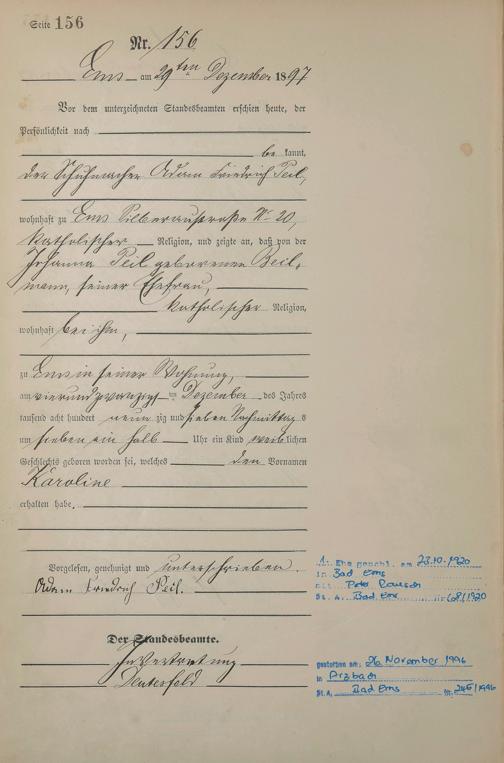 Seite 156
Nr. 156
Ems am 29ten Dezember 1897
Vor dem unterzeichneten Standesbeamten erschien heute, der
Persönlichkeit nach
be kannt,
der Schuhmacher Adam Friedrich Peil,
wohnhaft zu Ems Silberaustraße No 20,
katholischer Religion, und zeigte an, daß von der
Johanna Peil geborenen Beil,
mann, seiner Ehefrau,
katholischer Religion,
wohnhaft bei ihm,
zu Ems in seiner Wohnung,
am vierundzwanzigsten Dezember des Jahres
tausend acht hundert neun zig und sieben Nachmittag s
um sieben ein halb Uhr ein Kind weib lichen
Geschlechts geboren worden sei, welches den Vornamen
Karoline
erhalten habe.
Vorgelesen, genehmigt und unterschrieben.
Adam Friedrich Peil.
1. Ehe geschl. am 23.10.1920
in Bad Ems
mit Peter
St. A. Bad Ems Nr. 68/1920
Der Standesbeamte.
In Vertretung
gestorben am: 26. November 1996
in Arzbach
St. A. Bad Ems Nr. 245/1996